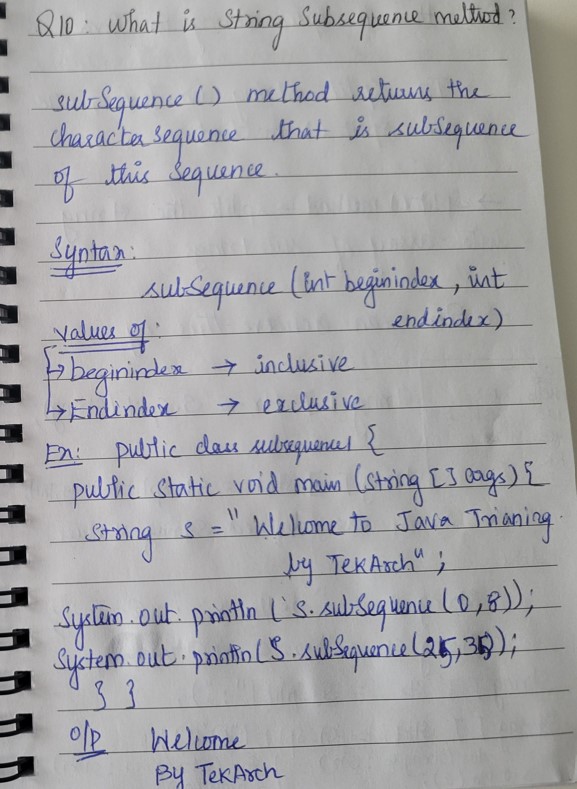 Q10: What is String Subsequence method?
subSequence () method returns the
character sequence that is subsequence
of this sequence.
Syntax:
subSequence (int beginindex, int
endindex)
values of:
→ beginindex → inclusive
→ Endindex → exclusive
Ex: public class subsequence1 {
public static void main (string [] args) {
String s = " Welcome to Java Trianing
by TekArch" ;
System.out.println ( s.subSequence (0,8));
System.out.println (S.subSequence (25,35));
} }
O/P Welcome
By TekArch